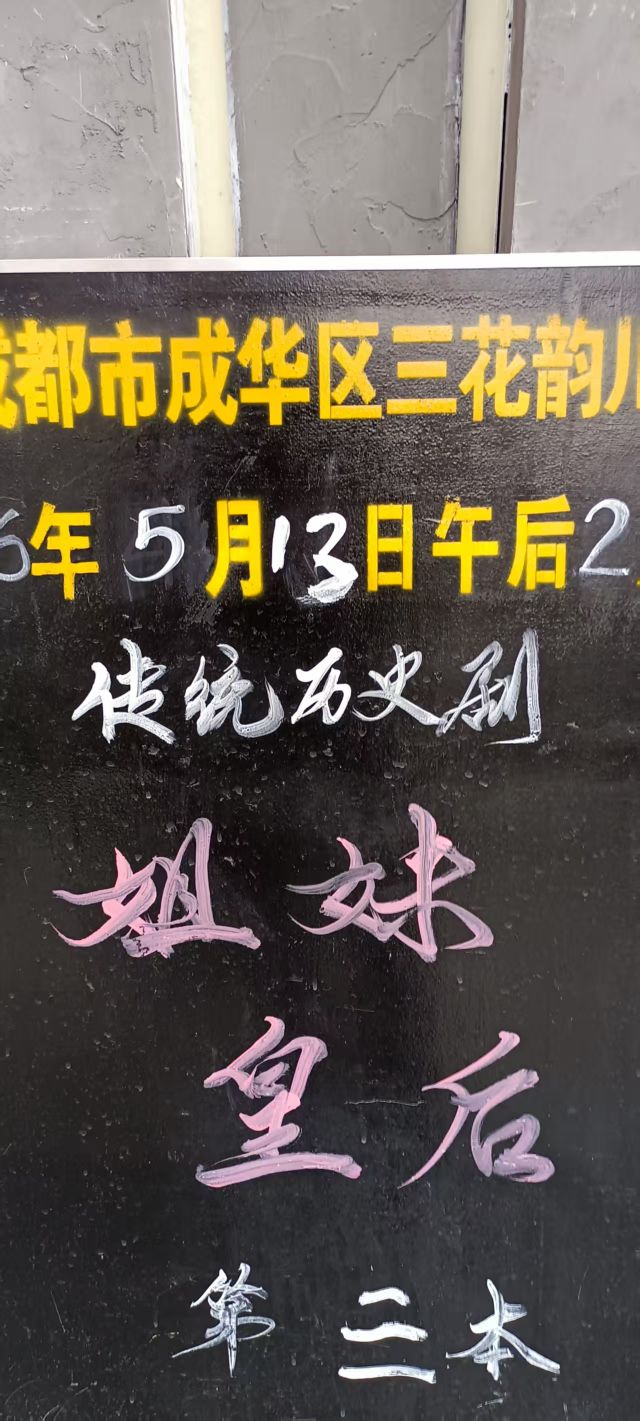 成都市成华区三花韵川
6年5月13日午后2
传统历史剧
姐妹
皇后
第三本